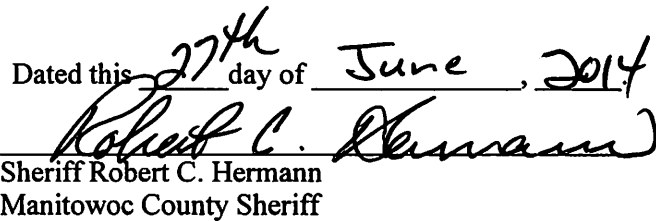 Dated this 27th day of June, 2014
Robert C. Hermann
Sheriff Robert C. Hermann
Manitowoc County Sheriff